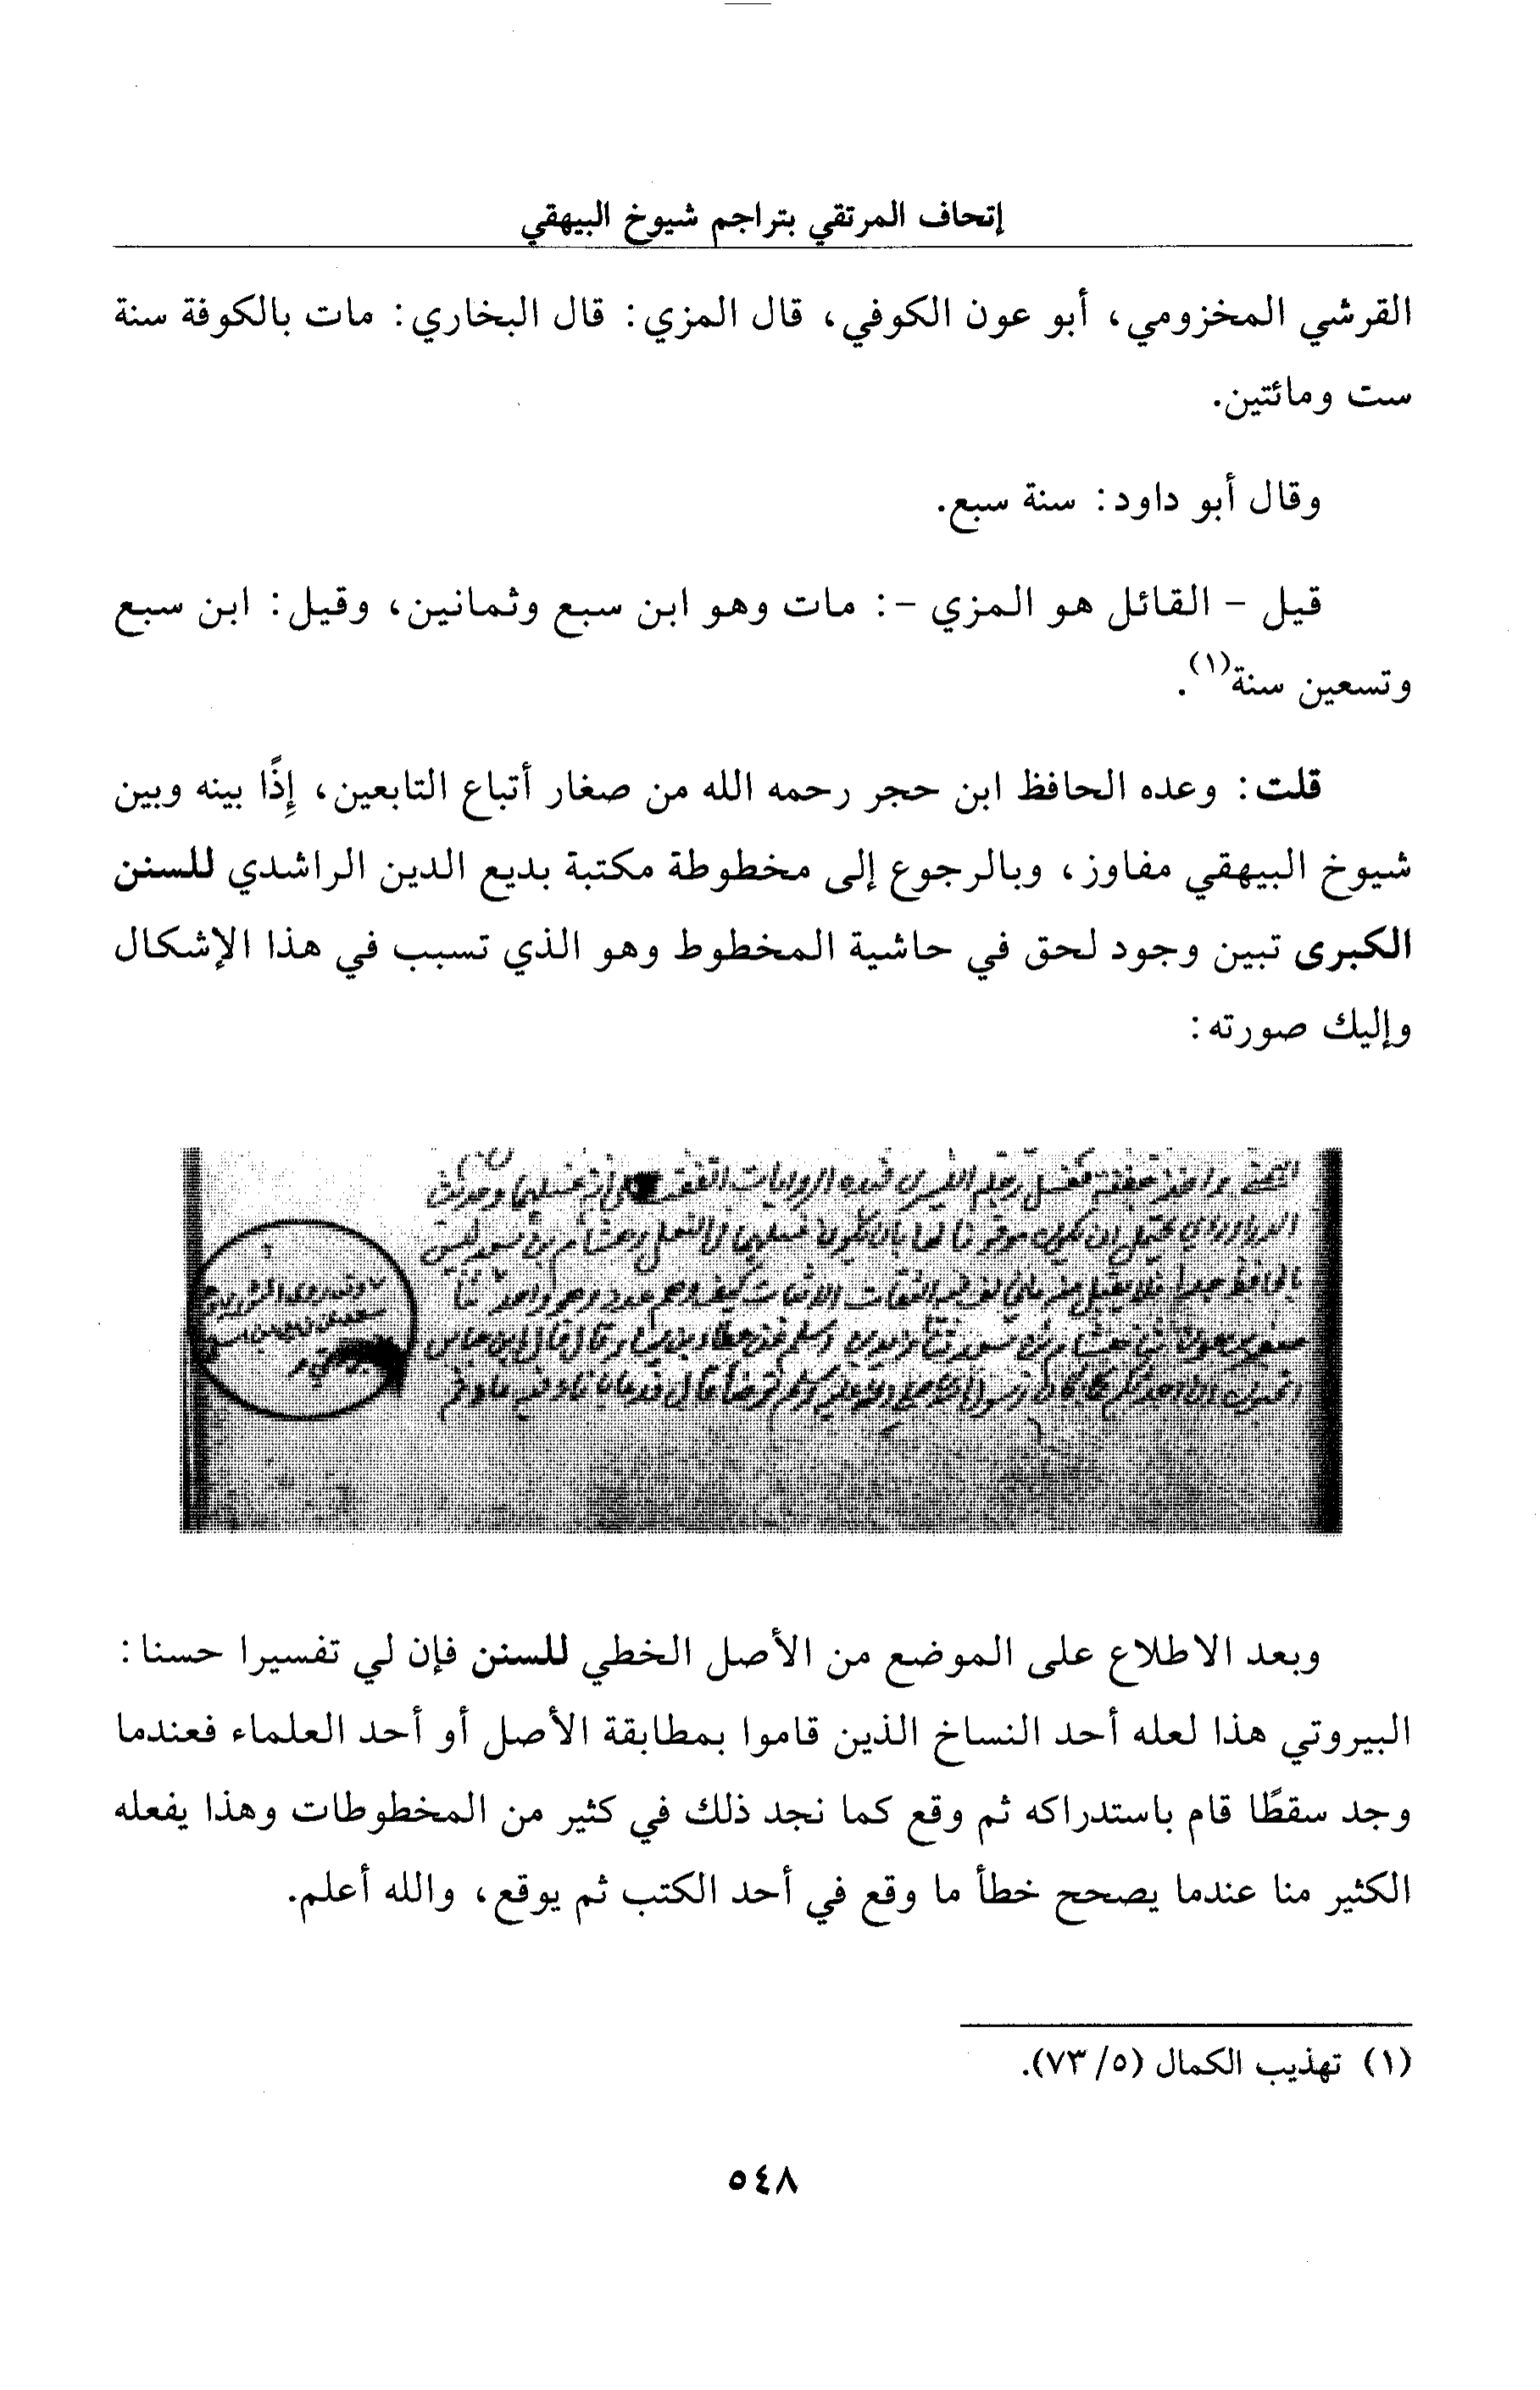 إتحاف المرتقي بتراجم شيوخ البيهقي
القرشي المخزومي، أبو عون الكوفي، قال المزي: قال البخاري: مات بالكوفة سنة
ست ومائتين.
وقال أبو داود: سنة سبع.
قيل - القائل هو المزي -: مات وهو ابن سبع وثمانين، وقيل: ابن سبع
وتسعين سنة(١).
قلت: وعده الحافظ ابن حجر رحمه الله من صغار أتباع التابعين، إِذًا بينه وبين
شيوخ البيهقي مفاوز، وبالرجوع إلى مخطوطة مكتبة بديع الدين الراشدي للسنن
الكبرى تبين وجود لحق في حاشية المخطوط وهو الذي تسبب في هذا الإشكال
وإليك صورته:
وبعد الاطلاع على الموضع من الأصل الخطي للسنن فإن لي تفسيرا حسنا:
البيروتي هذا لعله أحد النساخ الذين قاموا بمطابقة الأصل أو أحد العلماء فعندما
وجد سقطًا قام باستدراكه ثم وقع كما نجد ذلك في كثير من المخطوطات وهذا يفعله
الكثير منا عندما يصحح خطأ ما وقع في أحد الكتب ثم يوقع، والله أعلم.
(١) تهذيب الكمال (٥/ ٧٣).
٥٤٨